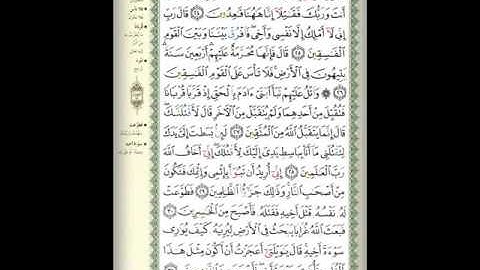 أَنتَ وَرَبُّكَ فَقَٰتِلَآ إِنَّا هَٰهُنَا قَٰعِدُونَ ٢٤ قَالَ رَبِّ
إِنِّي لَآ أَمْلِكُ إِلَّا نَفْسِي وَأَخِي فَٱفْرُقْ بَيْنَنَا وَبَيْنَ ٱلْقَوْمِ
ٱلْفَٰسِقِينَ ٢٥ قَالَ فَإِنَّهَا مُحَرَّمَةٌ عَلَيْهِمْ أَرْبَعِينَ سَنَةً
يَتِيهُونَ فِي ٱلْأَرْضِ فَلَا تَأْسَ عَلَى ٱلْقَوْمِ ٱلْفَٰسِقِينَ
٢٦ وَٱتْلُ عَلَيْهِمْ نَبَأَ ٱبْنَيْ ءَادَمَ بِٱلْحَقِّ إِذْ قَرَّبَا قُرْبَانًا
فَتُقُبِّلَ مِنْ أَحَدِهِمَا وَلَمْ يُتَقَبَّلْ مِنَ ٱلْآخَرِ قَالَ لَأَقْتُلَنَّكَ
قَالَ إِنَّمَا يَتَقَبَّلُ ٱللَّهُ مِنَ ٱلْمُتَّقِينَ ٢٧ لَئِنۢ بَسَطتَ إِلَيَّ يَدَكَ
لِتَقْتُلَنِي مَآ أَنَا۠ بِبَاسِطٍ يَدِيَ إِلَيْكَ لِأَقْتُلَكَ إِنِّيٓ أَخَافُ ٱللَّهَ
رَبَّ ٱلْعَٰلَمِينَ ٢٨ إِنِّيٓ أُرِيدُ أَن تَبُوٓأَ بِإِثْمِي وَإِثْمِكَ فَتَكُونَ
مِنْ أَصْحَٰبِ ٱلنَّارِ وَذَٰلِكَ جَزَٰٓؤُا۟ ٱلظَّٰلِمِينَ ٢٩ فَطَوَّعَتْ
لَهُۥ نَفْسُهُۥ قَتْلَ أَخِيهِ فَقَتَلَهُۥ فَأَصْبَحَ مِنَ ٱلْخَٰسِرِينَ ٣٠
فَبَعَثَ ٱللَّهُ غُرَابًا يَبْحَثُ فِي ٱلْأَرْضِ لِيُرِيَهُۥ كَيْفَ يُوَٰرِي
سَوْءَةَ أَخِيهِ قَالَ يَٰوَيْلَتَىٰٓ أَعَجَزْتُ أَنْ أَكُونَ مِثْلَ هَٰذَا